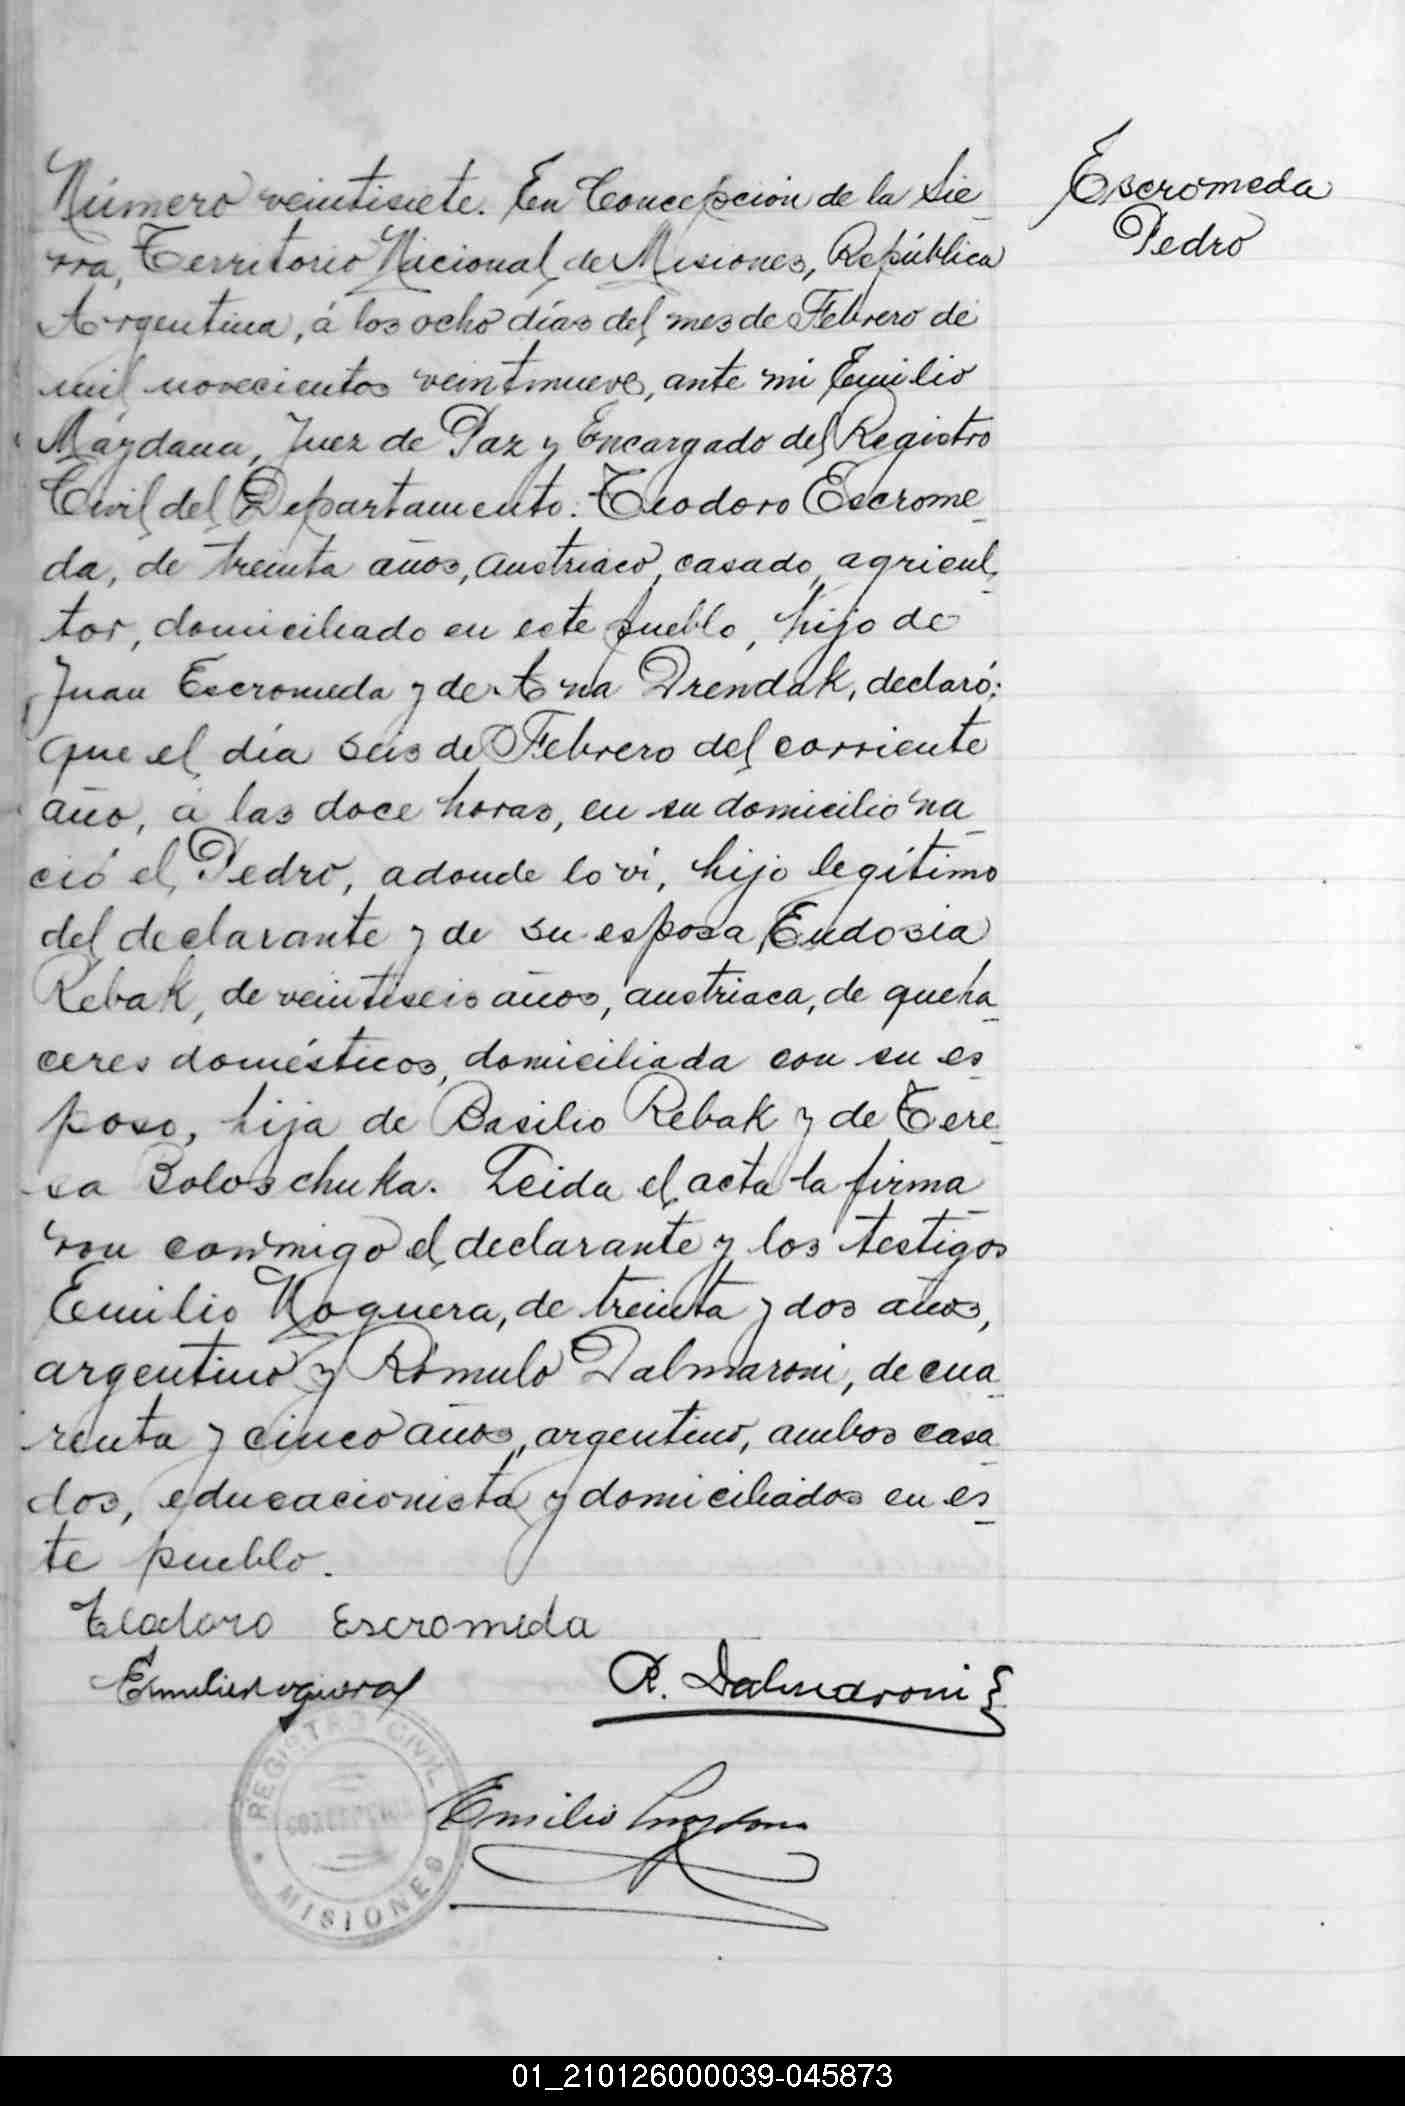 Número veintisiete. En Concepción de la Sie
rra, Territorio Nacional de Misiones, República
Argentina, á los ocho días del mes de Febrero de
mil novecientos veintinueve, ante mi Emilio
Mázdana, Juez de Paz y Encargado del Registro
Civil del Departamento: Teodoro Escrome
da, de treinta años, austriaco, casado, agricul
tor, domiciliado en este pueblo, hijo de
Juan Escromeda y de Ana Drendak, declaró:
que el día seis de Febrero del corriente
año, á las doce horas, en su domicilio na
ció el Pedro, adonde lo vi, hijo legítimo
del declarante y de su esposa Eudosia
Rebak, de veintiseis años, austriaca, de queha
ceres domésticos, domiciliada con su es
poso, hija de Basilio Rebak y de Tere
sa Boloschuka. Leida el acta la firma
ron conmigo el declarante y los testigos
Emilio Noguera, de treinta y dos años,
argentino y Rómulo Dalmaroni, de cua
renta y cinco años, argentino, ambos casa
dos, educacionista y domiciliados en es
te pueblo.
Teodoro Escromeda
Emilio Noguera
R. Dalmaroni
REGISTRO CIVIL
CONCEPCION
MISIONES
Emilio
Escromeda
Pedro
01_210126000039-045873